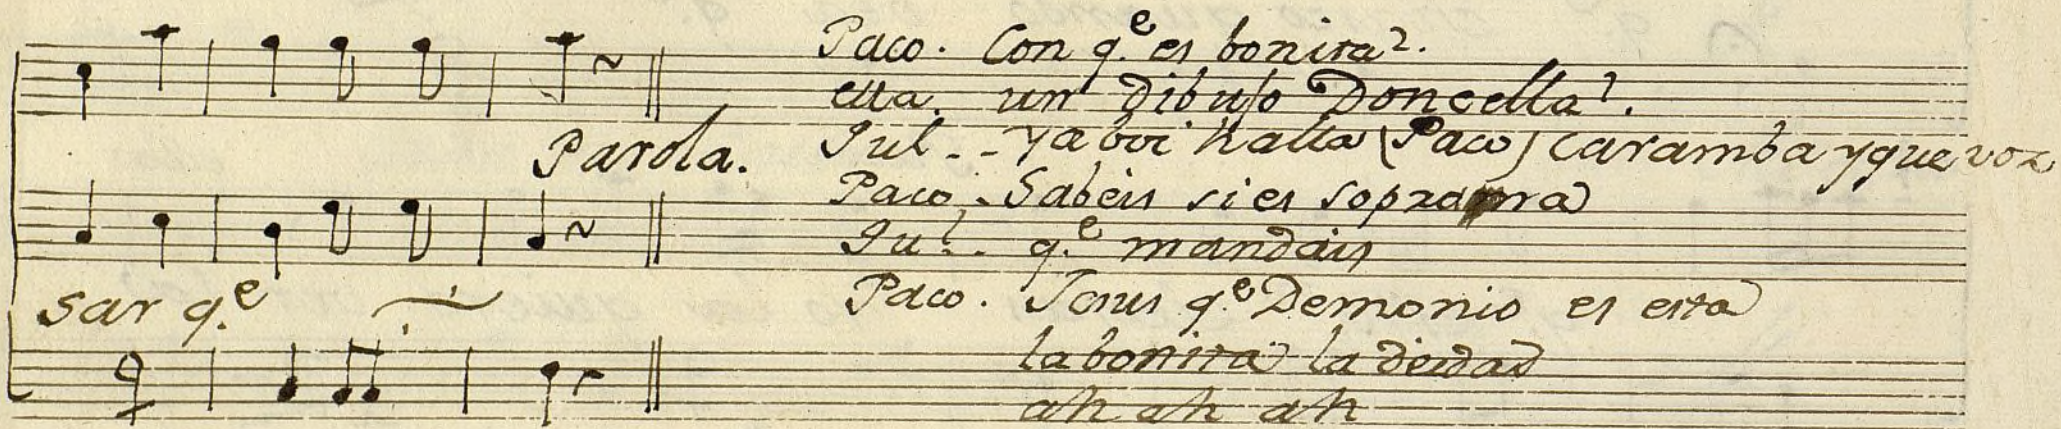 Paco. Con q.e es bonita?.
ella. un Dibujo Doncella?.
Jul.. ya boi halla (Paco) caramba y que voz
Parola.
Paco. Sabeis si es soprana
Jul. q.e mandais
sar q.e
Paco. Jesus q.e Demonio es esta
la bonita la deidad
ah ah ah